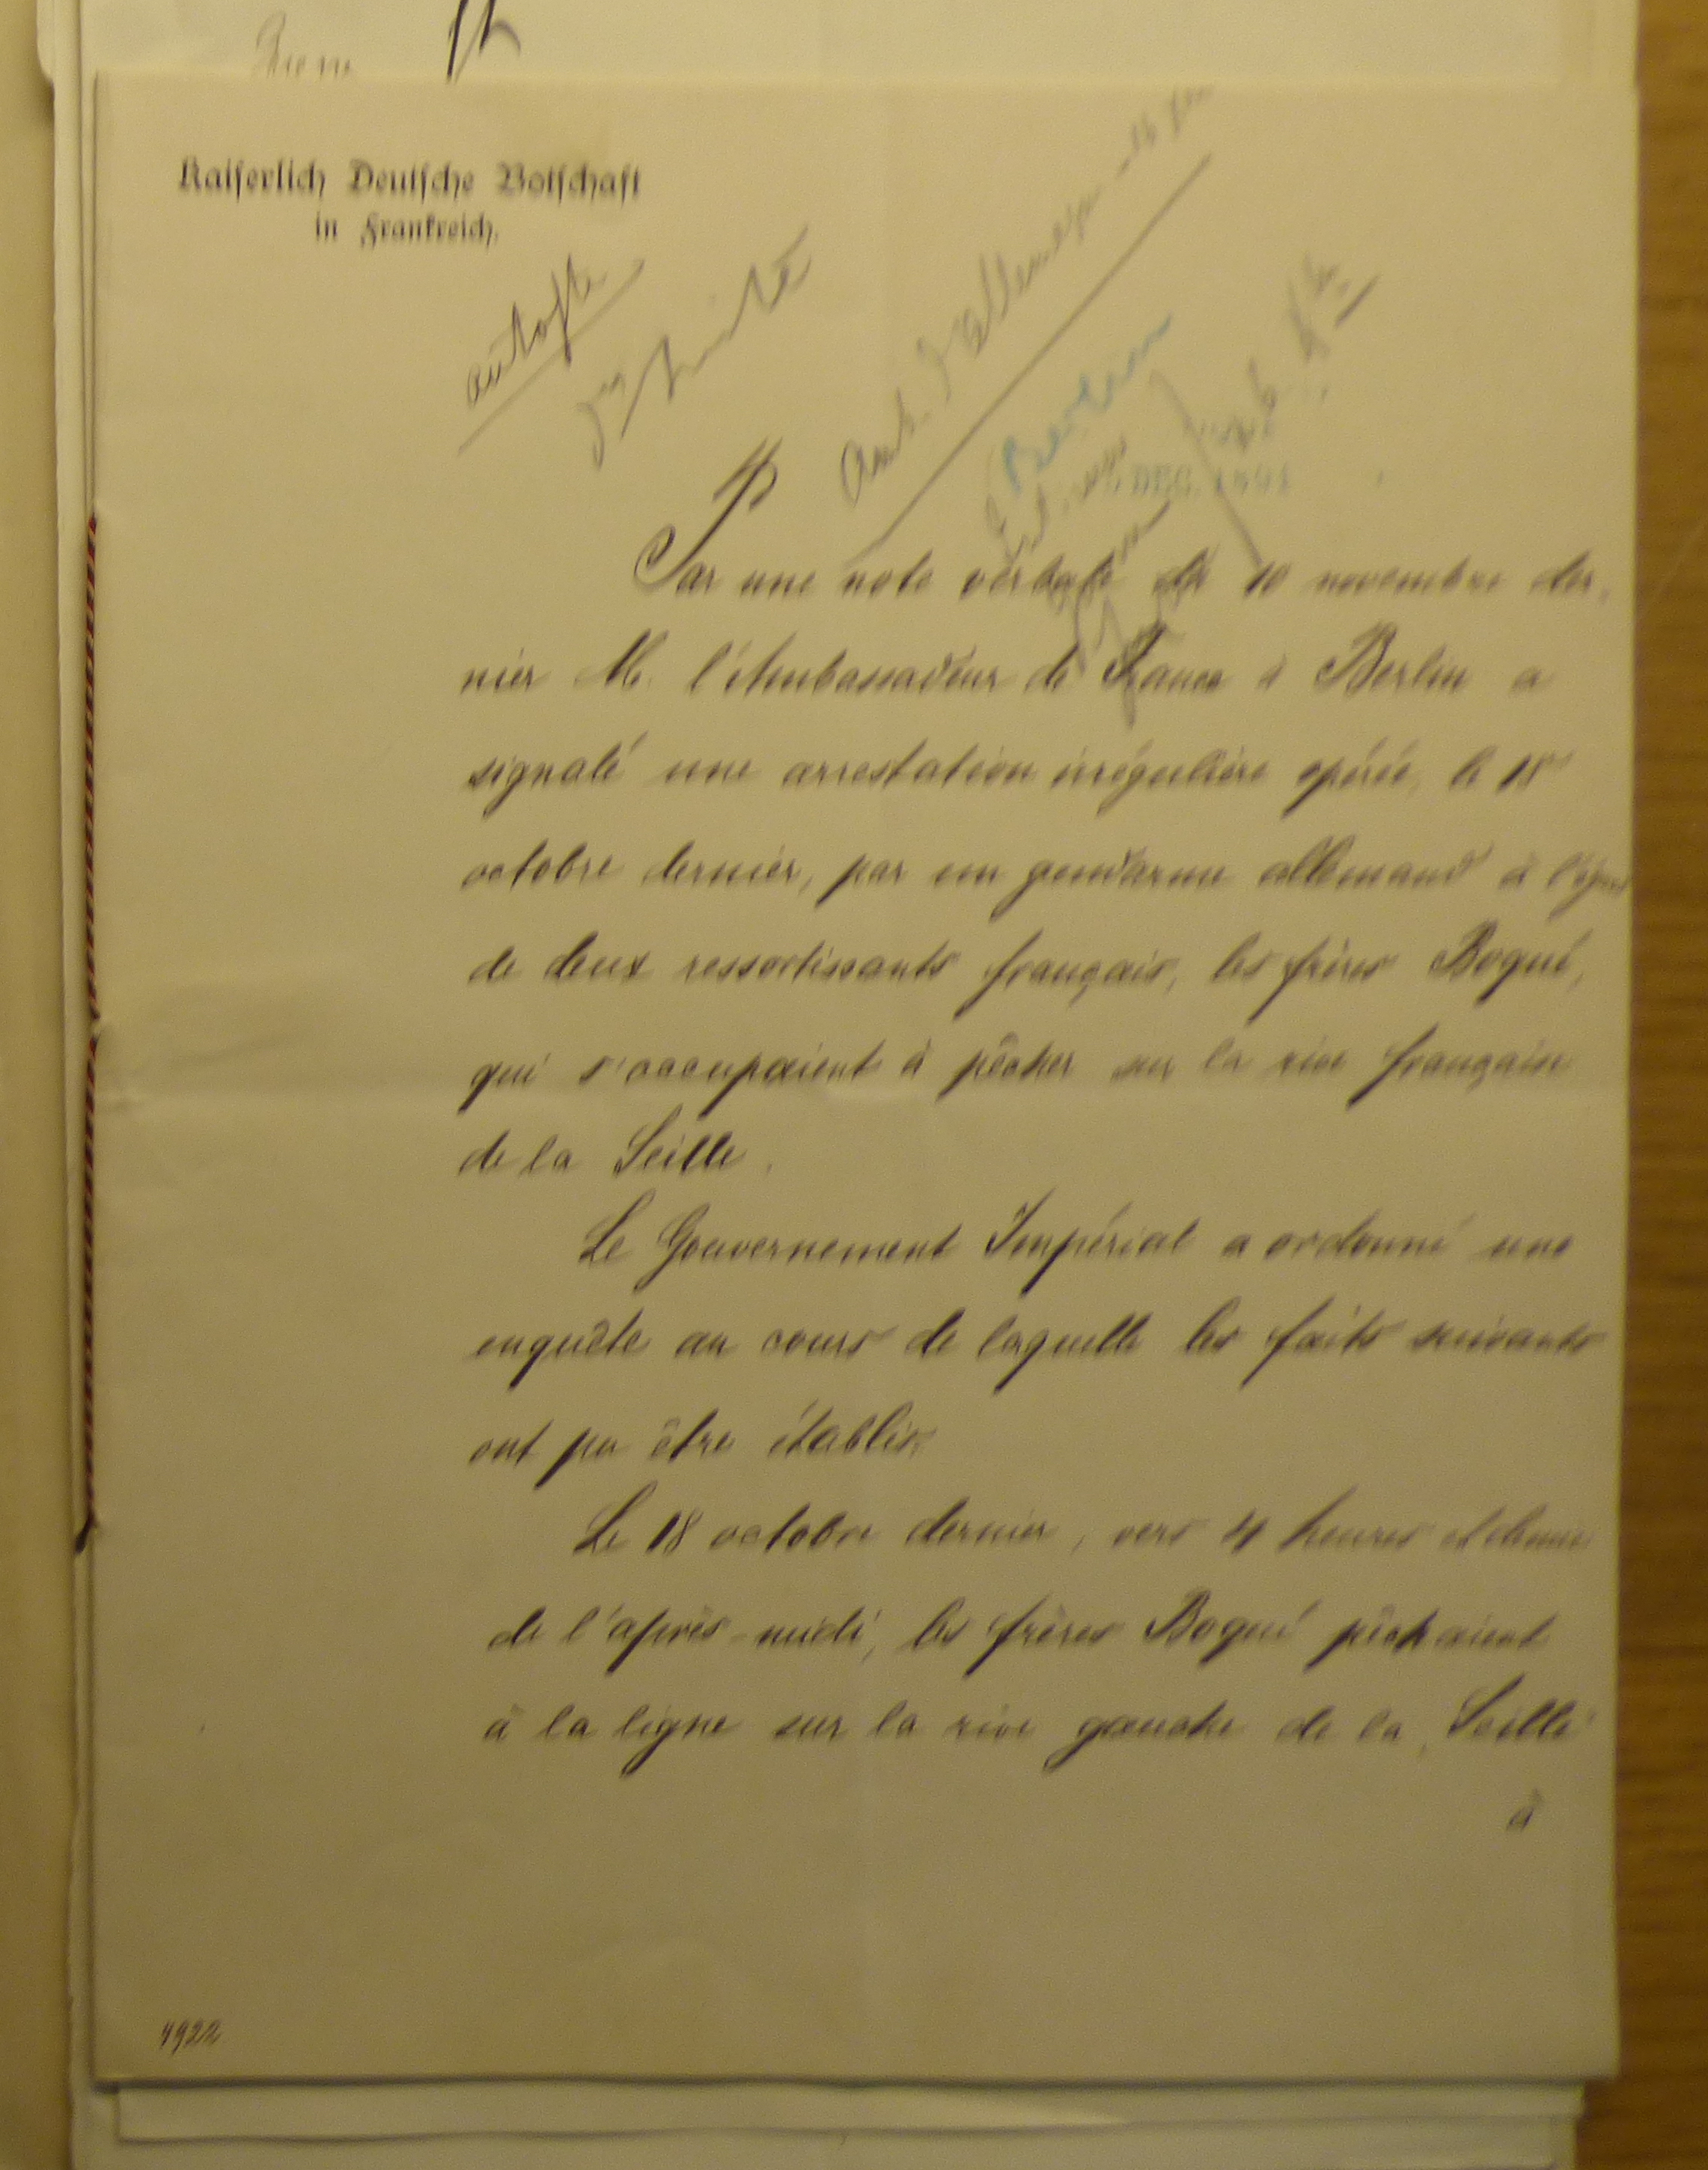 Kaiserlich Deutsche Botschaft
in Frankreich.
Amb. d'Allemagne
Berlin
DEC. 1891
Par une note verbale du 10 novembre der,
nier M. l'Ambassadeur de France à Berlin a
signalé une arrestation irrégulière opérée, le 18
octobre dernier, par un gendarme allemand à l'égard
de deux ressortissants français, les frères Boqué,
qui s'occupaient à pêcher sur la rive française
de la Seille.
Le Gouvernement Impérial a ordonné une
enquête au cours de laquelle les faits suivants
ont pu être établis.
Le 18 octobre dernier, vers 4 heures et demie
de l'après-midi, les frères Boqué pêchaient
à la ligne sur la rive gauche de la Seille
à
4922